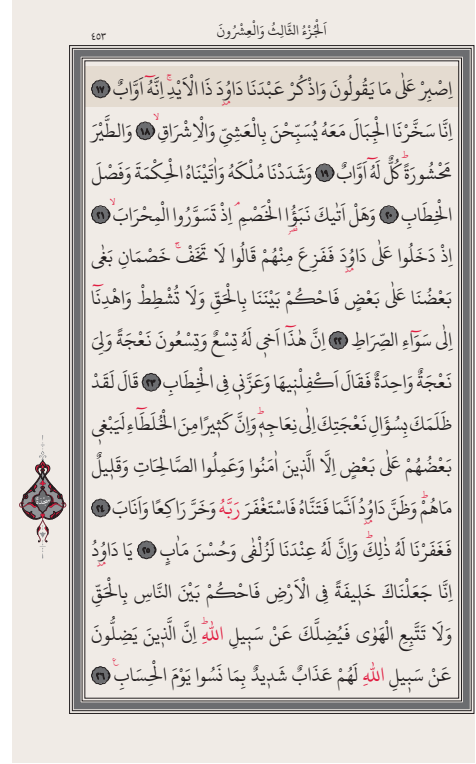 اَلْجُزْءُ الثَّالِثُ وَالْعِشْرُونَ
٤٥٣
اِصْبِرْ عَلٰى مَا يَقُولُونَ وَاذْكُرْ عَبْدَنَا دَاوُ۫دَ ذَا الْاَيْدِۚ اِنَّهُٓ اَوَّابٌ ﴿١٧﴾
اِنَّا سَخَّرْنَا الْجِبَالَ مَعَهُ يُسَبِّحْنَ بِالْعَشِيِّ وَالْاِشْرَاقِۙ ﴿١٨﴾ وَالطَّيْرَ
مَحْشُورَةًۜ كُلٌّ لَهُٓ اَوَّابٌ ﴿١٩﴾ وَشَدَدْنَا مُلْكَهُ وَاٰتَيْنَاهُ الْحِكْمَةَ وَفَصْلَ
الْخِطَابِ ﴿٢٠﴾ وَهَلْ اَتٰيكَ نَبَؤُا الْخَصْمِۢ اِذْ تَسَوَّرُوا الْمِحْرَابَۙ ﴿٢١﴾
اِذْ دَخَلُوا عَلٰى دَاوُ۫دَ فَفَزِعَ مِنْهُمْ قَالُوا لَا تَخَفْۚ خَصْمَانِ بَغٰى
بَعْضُنَا عَلٰى بَعْضٍ فَاحْكُمْ بَيْنَنَا بِالْحَقِّ وَلَا تُشْطِطْ وَاهْدِنَٓا
اِلٰى سَوَٓاءِ الصِّرَاطِ ﴿٢٢﴾ اِنَّ هٰذَٓا اَخ۪ي لَهُ تِسْعٌ وَتِسْعُونَ نَعْجَةً وَلِيَ
نَعْجَةٌ وَاحِدَةٌ فَقَالَ اَكْفِلْن۪يهَا وَعَزَّن۪ي فِي الْخِطَابِ ﴿٢٣﴾ قَالَ لَقَدْ
ظَلَمَكَ بِسُؤَالِ نَعْجَتِكَ اِلٰى نِعَاجِه۪ۜ وَاِنَّ كَث۪يرًا مِنَ الْخُلَطَٓاءِ لَيَبْغ۪ي
بَعْضُهُمْ عَلٰى بَعْضٍ اِلَّا الَّذ۪ينَ اٰمَنُوا وَعَمِلُوا الصَّالِحَاتِ وَقَل۪يلٌ
مَا هُمْۜ وَظَنَّ دَاوُ۫دُ اَنَّمَا فَتَنَّاهُ فَاسْتَغْفَرَ رَبَّهُ وَخَرَّ رَاكِعًا وَاَنَابَ ﴿٢٤﴾
فَغَفَرْنَا لَهُ ذٰلِكَۜ وَاِنَّ لَهُ عِنْدَنَا لَزُلْفٰى وَحُسْنَ مَاٰبٍ ﴿٢٥﴾ يَا دَاوُ۫دُ
اِنَّا جَعَلْنَاكَ خَل۪يفَةً فِي الْاَرْضِ فَاحْكُمْ بَيْنَ النَّاسِ بِالْحَقِّ
وَلَا تَتَّبِعِ الْهَوٰى فَيُضِلَّكَ عَنْ سَب۪يلِ اللّٰهِۜ اِنَّ الَّذ۪ينَ يَضِلُّونَ
عَنْ سَب۪يلِ اللّٰهِ لَهُمْ عَذَابٌ شَد۪يدٌ بِمَا نَسُوا يَوْمَ الْحِسَابِ۟ ﴿٢٦﴾